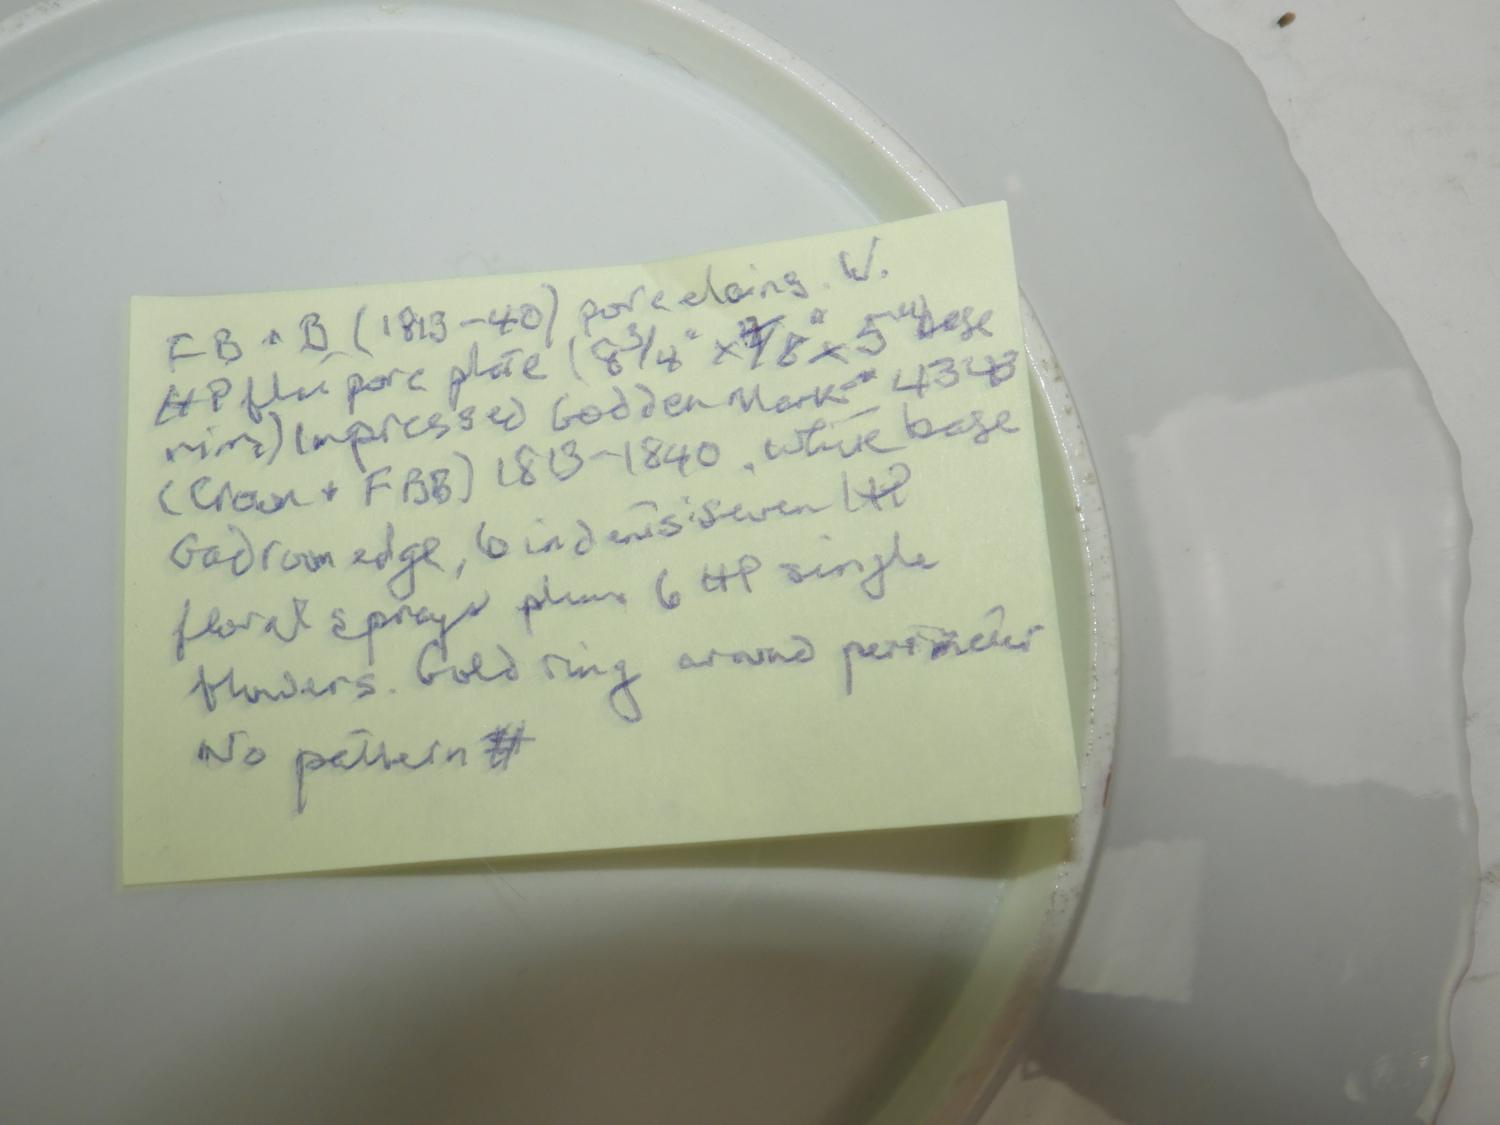 FB + B (1813-40) porcelains. W.
HP flui porc plate (8 3/4" x 7/8" x 5" base
rim) Impressed Godden Mark # 4343
(Crown + FBB) 1813-1840, white base
Gadroon edge, 6 indents: Seven HP
floral sprays plus 6 HP single
flowers. Gold ring around perimeter
No pattern #